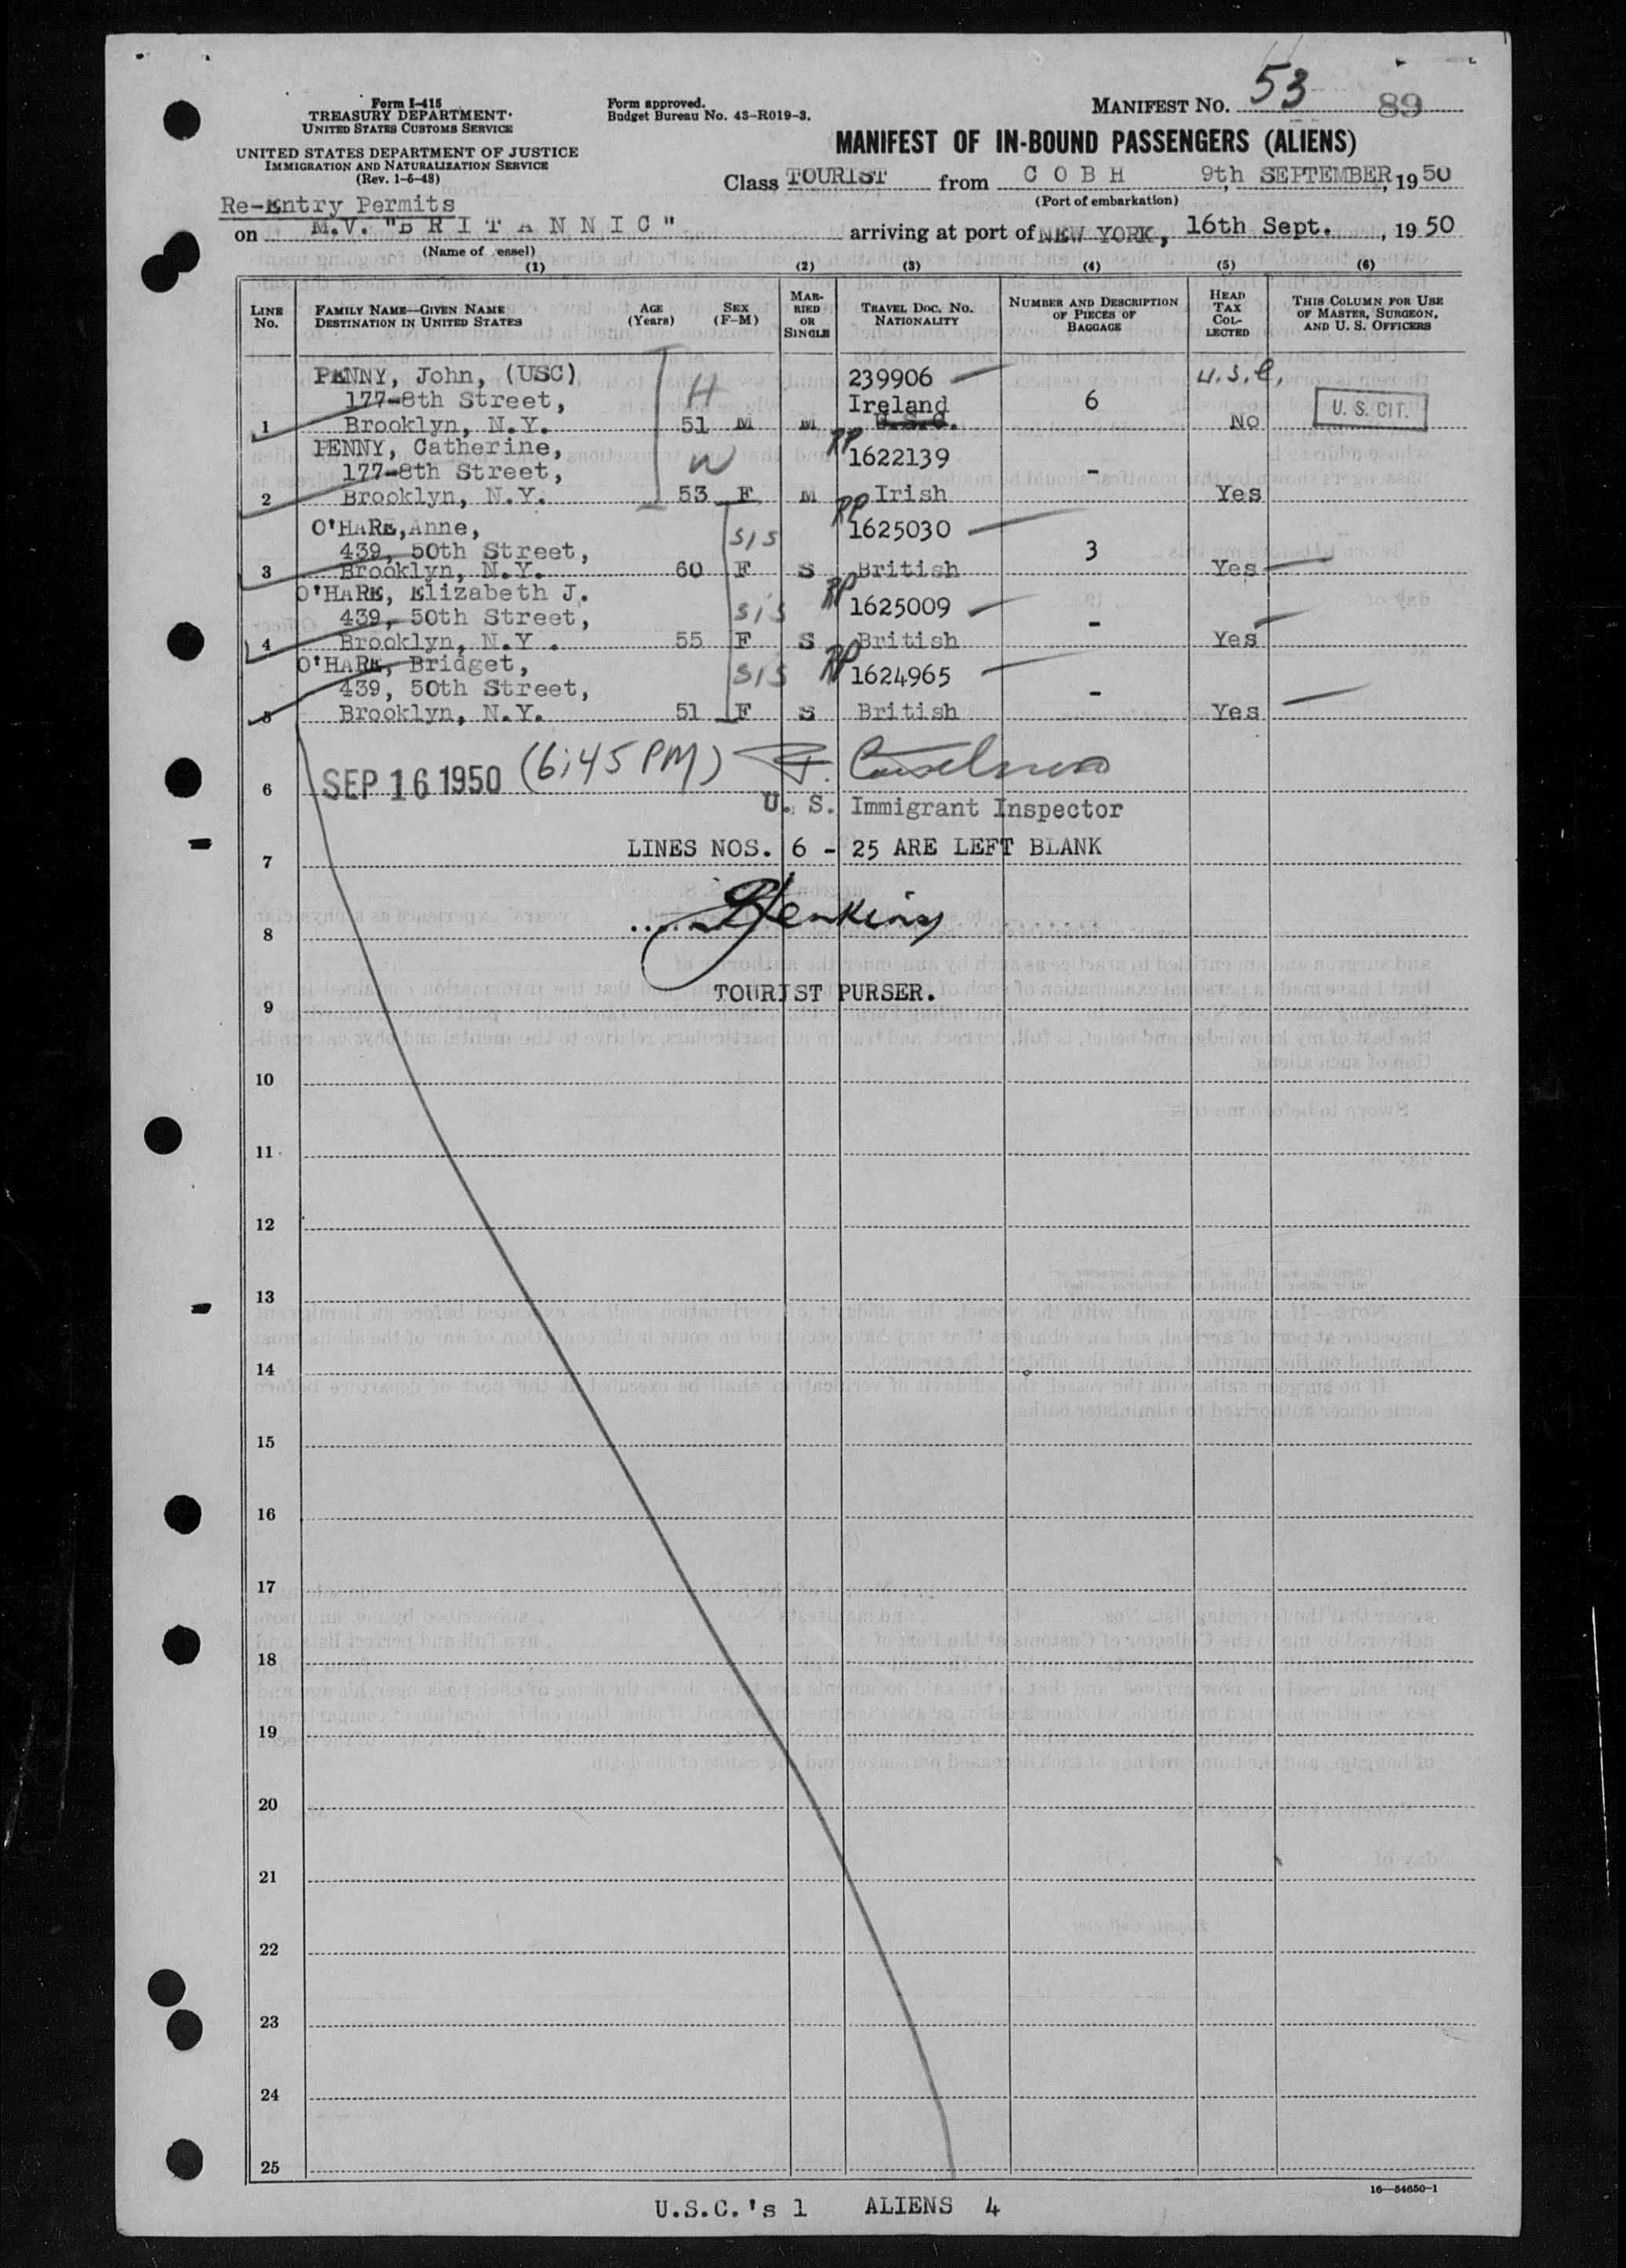 Form I-415
TREASURY DEPARTMENT
UNITED STATES CUSTOMS SERVICE
UNITED STATES DEPARTMENT OF JUSTICE
IMMIGRATION AND NATURALIZATION SERVICE
(Rev. 1-6-48)
Form approved.
Budget Bureau No. 43-R019-3.
MANIFEST NO. 53 89
MANIFEST OF IN-BOUND PASSENGERS (ALIENS)
Class TOURIST from COBH 9th SEPTEMBER, 1950
(Port of embarkation)
Re-Entry Permits
on M.V. "BRITANNIC" arriving at port of NEW YORK, 16th Sept., 1950
(Name of essel)
(1) (2) (3) (4) (5) (6)
LINE No. FAMILY NAME—GIVEN NAME DESTINATION IN UNITED STATES AGE (Years) SEX (F-M) MARRIED OR SINGLE TRAVEL DOC. NO. NATIONALITY NUMBER AND DESCRIPTION OF PIECES OF BAGGAGE HEAD TAX COLLECTED THIS COLUMN FOR USE OF MASTER, SURGEON, AND U. S. OFFICERS
PENNY, John, (USC) H 239906 U.S.C.
177-8th Street, Ireland 6 U. S. CIT.
1 Brooklyn, N.Y. 51 M M U.S.C. No
PENNY, Catherine, W RP 1622139
177-8th Street, -
2 Brooklyn, N.Y. 53 F M Irish Yes
O'HARE, Anne, sis RP 1625030
439, 50th Street, 3
3 Brooklyn, N.Y. 60 F S British Yes
O'HARE, Elizabeth J. sis RP 1625009
439, 50th Street, -
4 Brooklyn, N.Y. 55 F S British Yes
O'HARE, Bridget, sis RP 1624965
439, 50th Street, -
5 Brooklyn, N.Y. 51 F S British Yes
6 SEP 16 1950 (6:45 PM)
U. S. Immigrant Inspector
7 LINES NOS. 6 - 25 ARE LEFT BLANK
8 Jenkins
TOURIST PURSER.
9
10
11
12
13
14
15
16
17
18
19
20
21
22
23
24
25
16—54650-1
U.S.C.'s 1 ALIENS 4